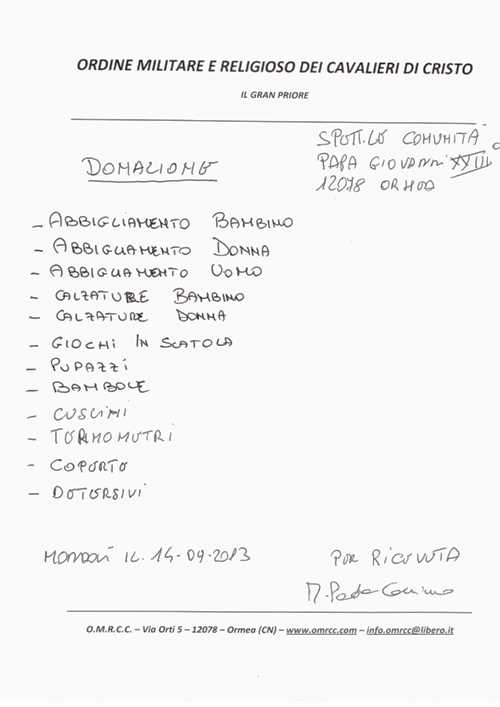 ORDINE MILITARE E RELIGIOSO DEI CAVALIERI DI CRISTO
IL GRAN PRIORE
SPETT.LE COMUNITÀ
PAPA GIOVANNI XXIII
12078 ORMEA
DONAZIONE
- ABBIGLIAMENTO BAMBINO
- ABBIGLIAMENTO DONNA
- ABBIGLIAMENTO UOMO
- CALZATURE BAMBINO
- CALZATURE DONNA
- GIOCHI IN SCATOLA
- PUPAZZI
- BAMBOLE
- CUSCINI
- COPERTE
- DETERSIVI
MONDOVÌ IL 14-09-2013
PER RICEVUTA
O.M.R.C.C. – Via Orti 5 – 12078 – Ormea (CN) – www.omrcc.com – info.omrcc@libero.it